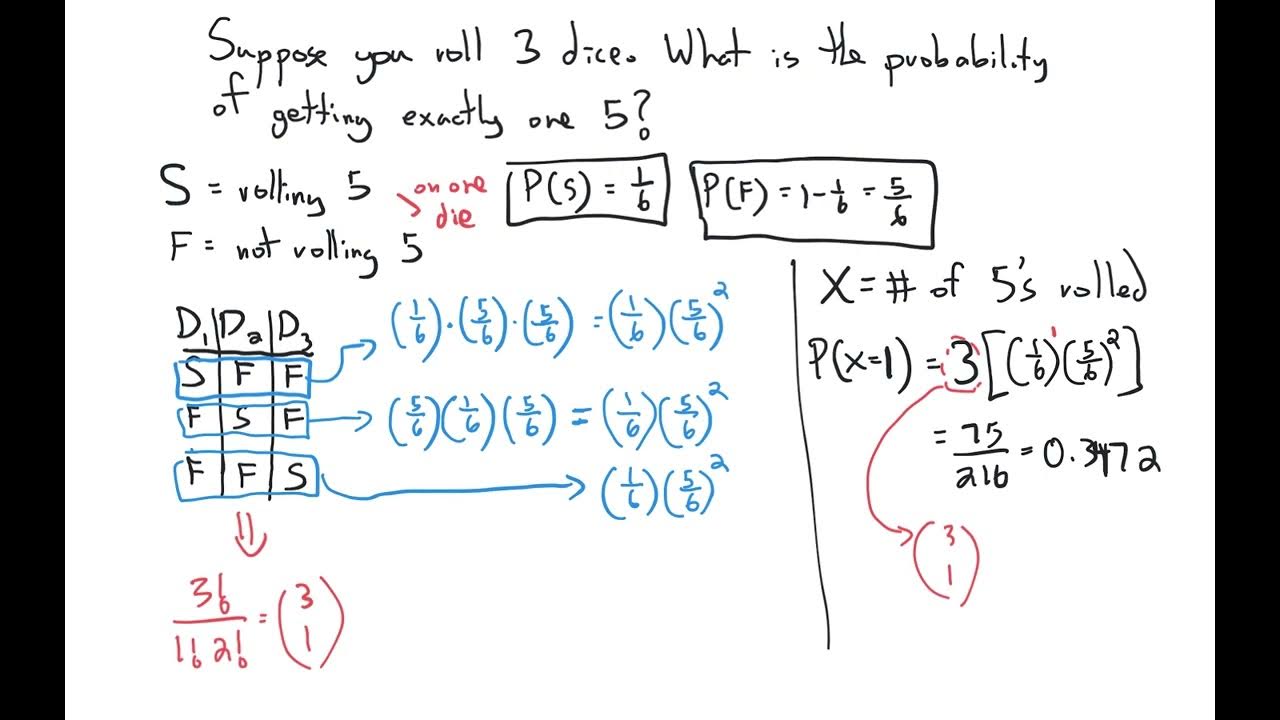 Suppose you roll 3 dice. What is the probability
of getting exactly one 5?
S = rolling 5
F = not rolling 5
on one
die
P(S) = 1/6
P(F) = 1 - 1/6 = 5/6
D₁ | D₂ | D₃
S | F | F
F | S | F
F | F | S
(1/6)·(5/6)·(5/6) = (1/6)(5/6)²
(5/6)(1/6)(5/6) = (1/6)(5/6)²
(1/6)(5/6)²
⇓
3!/(1! 2!) = (3 1)
X = # of 5's rolled
P(x=1) = 3[(1/6)¹(5/6)²]
= 75/216 = 0.3472
(3 1)